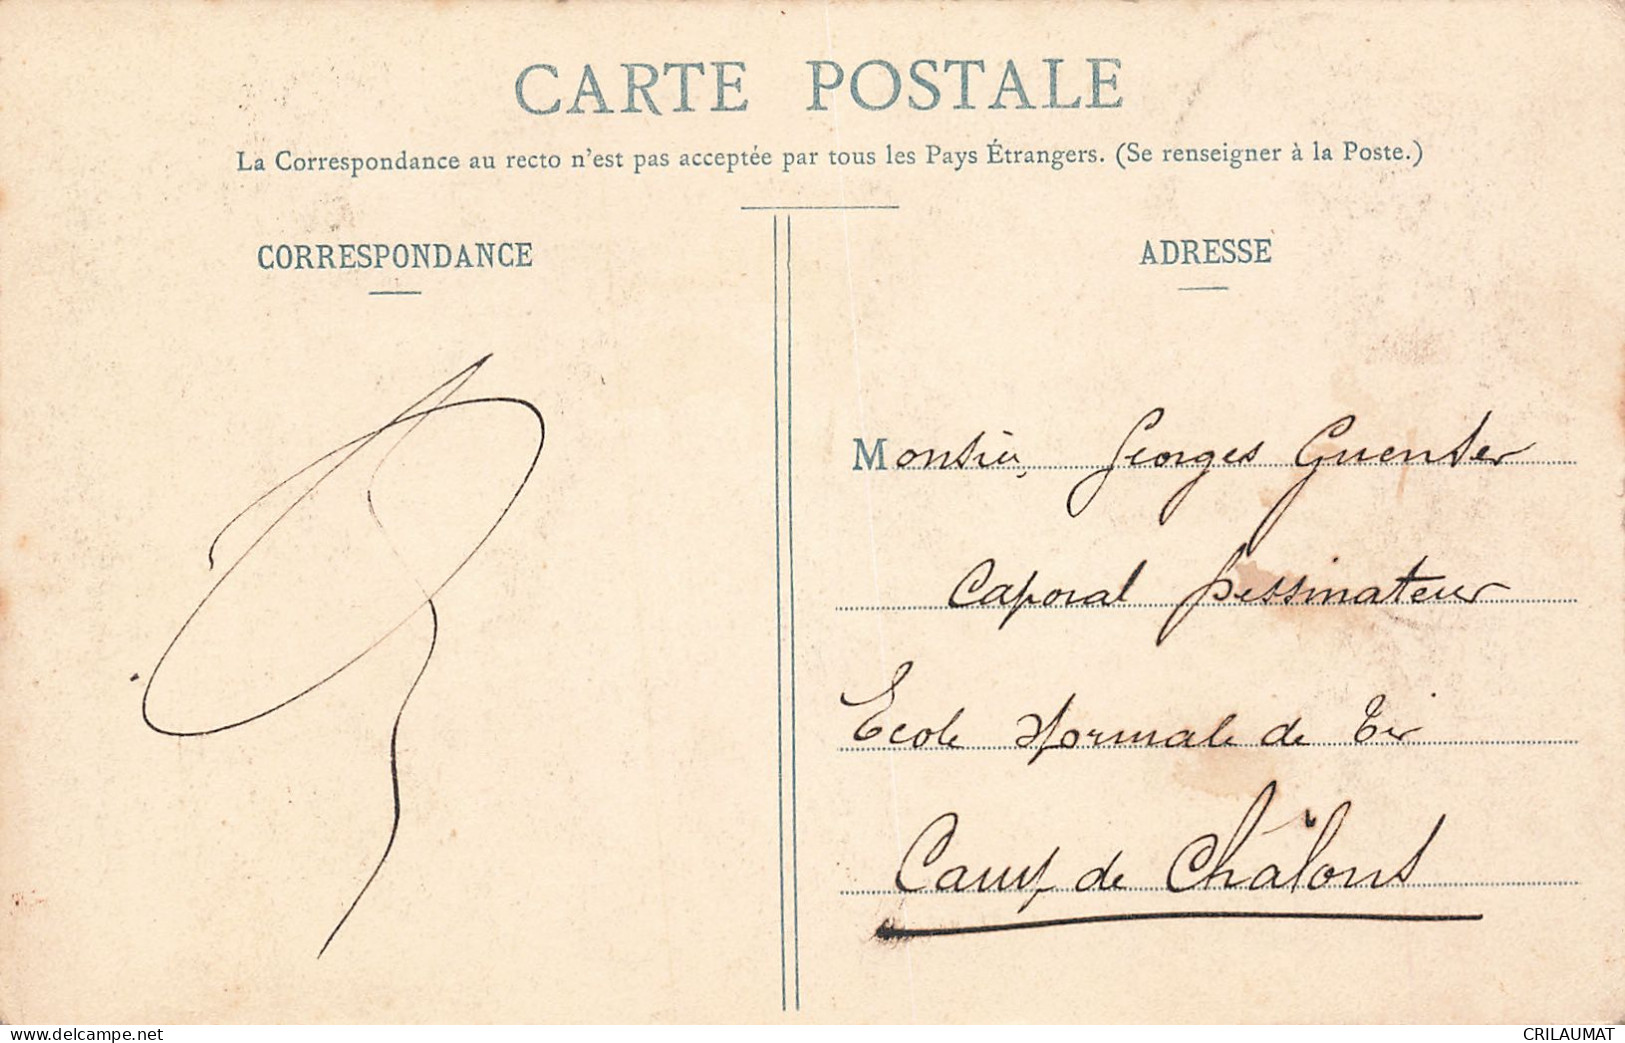 CARTE POSTALE
La Correspondance au recto n'est pas acceptée par tous les Pays Étrangers. (Se renseigner à la Poste.)
CORRESPONDANCE
ADRESSE
Monsieur Georges Guenser
Caporal Dessinateur
Ecole Normale de Tir
Camp de Châlons
www.delcampe.net
CRILAUMAT